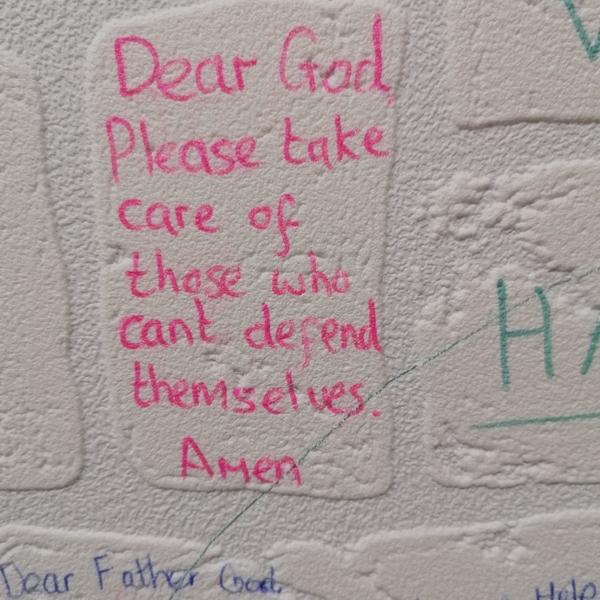 Dear God,
Please take
care of
those who
cant defend
themselves.
Amen
HA
Dear Father God,
Help